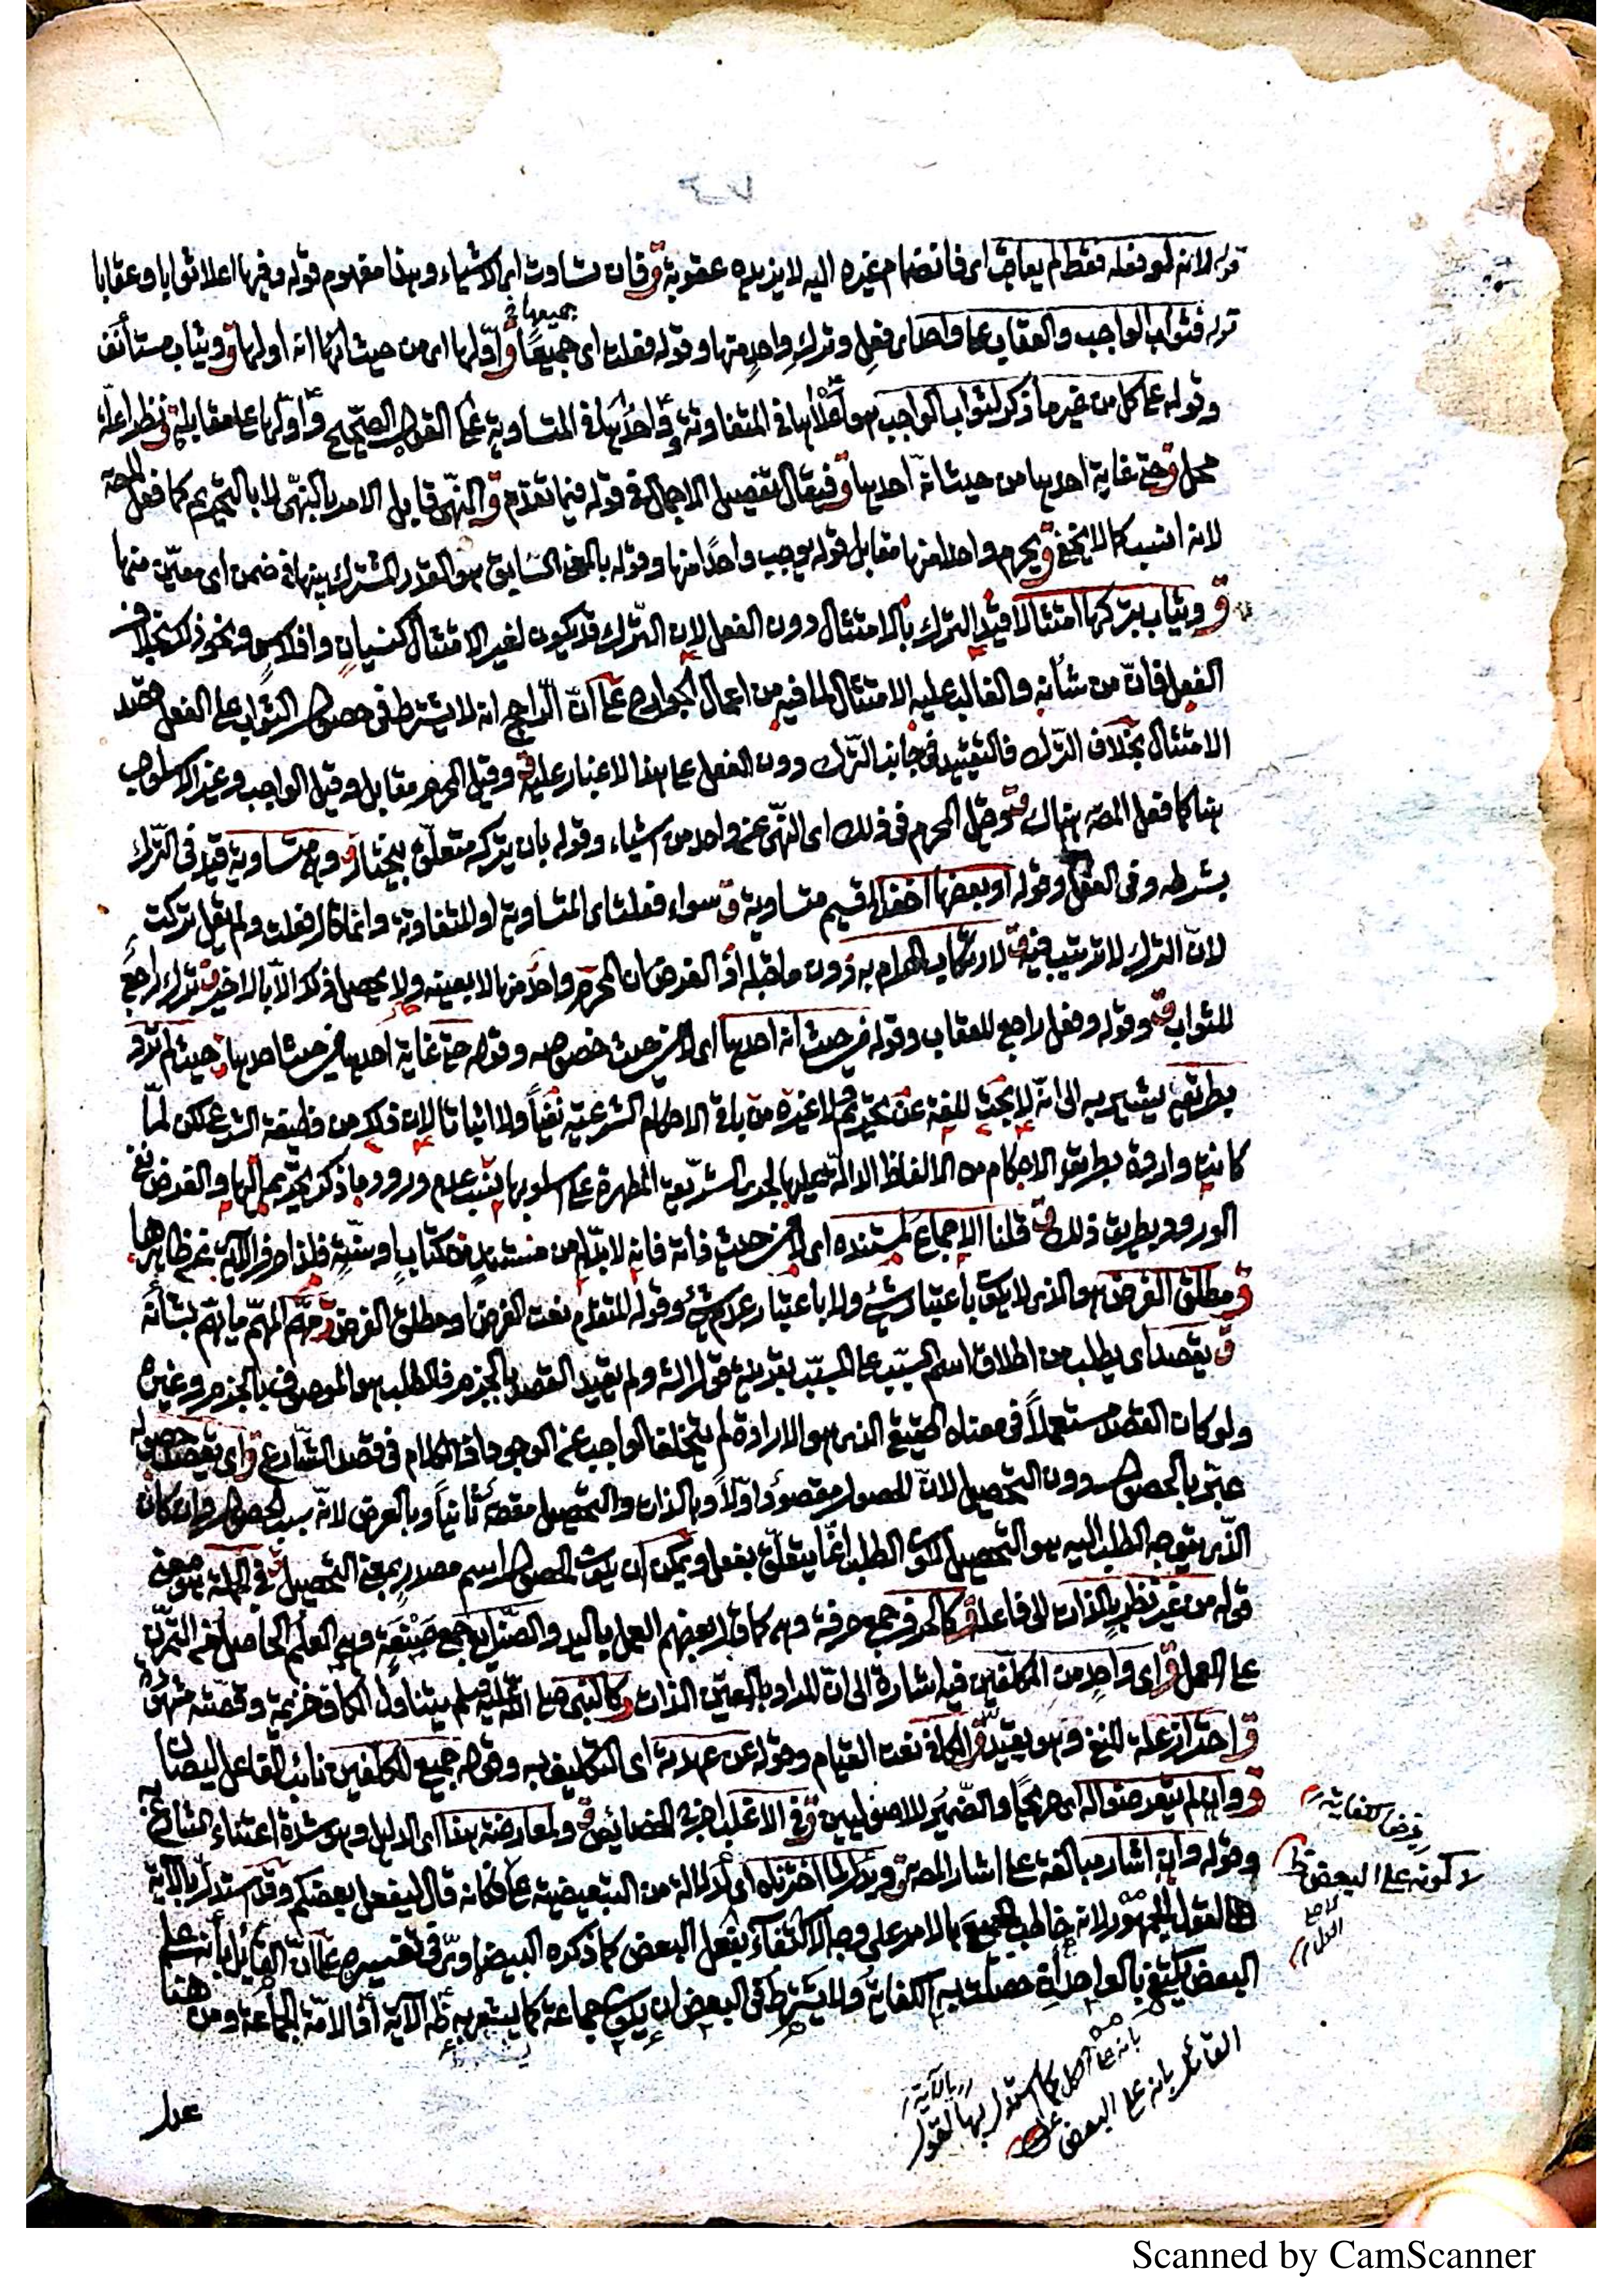 قوله لانه لو فعله فقط لم يعاقب اى فانضمام غيره اليه لا يزيده عقوبة ق فان تساوت اى الاشياء وهذا مفهوم قوله وفيها اعلا ثوابا وعقابا
جميعها
قوله فثواب الواجب والعقاب على واحد اى فعل وترك واحد منها وقوله فعلت اى جميعًا ق اوّلها اى من حيث انه اولها ق ويثاب
وقوله على كل من غير ما ذكر لثواب الواجب هو اعلاها فى المتفاوتة واحدها فى المتساوية على القول الصّحيح واوّلها على مقابله ق نظرا
محل ق حتى غاية احدها من حيث انّه احدها ق فيقال تفصيل الاجمال فى قوله فيما تقدّم ق النهى قابل الامر بالنهى لا بالتحريم كما فعل المصه
لانه انسب كما لا يخفى ق يحرم واحدا منها مقابل قوله يوجب واحدًا منها وقوله بالمعنى السّابق هو القدر المشترك بينها فى ضمن اى معيّن منها
ق ويثاب بتركها امتثالا قيّد الترك بالامتثال دون الفعل لان الترك قد يكون لغير الامتثال كنسيان ونحو ذلك بخلاف
الفعل فانّ من شأنه والغالب عليه الامتثال لما فيه من اعمال الجوارح على انّ الرّاجح انه لا يشترط فى حصول الثواب على الفعل قصد
الامتثال بخلاف الترك فالتقييد فى جانب الترك دون الفعل على هذا لا غبار عليه ق وقيل المحرم مقابل وقيل الواجب وغيّر الاسلوب
هنا كما فعل المصه هناك ق وقيل المحرم فى ذلك اى النّهى عن واحد من اشياء وقوله بان يتركه متعلّق بيختار ق وهى متساوية قيد فى الترك
بشرطه وفى الفعل وقوله او بعضها اخف قسيم متساوية ق سواء فعلت اى المتساوية او المتفاوتة وانما قال فعلت ولم يقل تركت
لانّ الترك لا ترتيب فيه ق لارتكاب الحرام به دون ما قبله اذ الفرض ان المحرم واحد منها لا بعينه ولا يحصل ذلك الّا بالاخير ق ترك راجع
للثواب وقوله وفعل راجع للعقاب وقوله من حيث انه احدها اى لا من حيث خصوصه وقوله حتى غاية احدها من حيث احدها ق حيث لم ترد
بطريقه يشير به الى انّه لا بحث للغة عن تحريم ولا غيره من باقى الاحكام الشرعية نفيًا ولا اثباتا لان ذلك من وظيفة الشرع لكن لمّا
كانت واردة بطريقة الاحكام من الالفاظ الدالّة عليها لجرى الشريعة المطهرة على اسلوبها عدم ورود ما ذكر تحريم اليها والغرض نفى
الورود بطريق ذلك ق قلنا الاجماع لمستنده اى لا من حيث ذاته فانه لا بدّ له من مستند من كتاب او سنّة فلذا صرف الآية عن ظاهرها
ق مطلق الفرض هو الذى لا يكون باعتبار شىء ولا باعتبار عدم شىء وقوله المتقدم نعت الفرض او مطلق الفرض ق مهم المهمّ ما يهتم بشأنه
ق يقصد اى يطلب من اطلاق اسم السّبب على المسبّب بقرينة ولم يقيّد القصد بالجزم فالطلب هو الموصوف بالجزم وغيره
ولو كان القصد مستعملًا فى معناه الحقيقى الذى هو الارادة لم يتخلف الواجب عن الوجود اذ الكلام فى قصد الشّارع ق اى يقصد حصوله
عبّر بالحصول دون التحصيل لانّ الحصول مقصود اوّلا وبالذات والتحصيل مقصود ثانيًا وبالعرض لانّه سبب الحصول وان كان
الذى يتوجه الطلب اليه هو التحصيل لكون الطلب انّما يتعلّق بفعل ويمكن ان يكون الحصول اسم مصدر بمعنى التحصيل ق فى الجملة هو معنى
قوله من غير نظر بالذات الى فاعله ق كالحرف جمع حرفة وهى كما قال بعضهم العمل باليد والصّنايع جمع صَنْعَة وهى العلم الحاصل من التمرّن
على العمل ق اى واحد من المكلفين فيه اشارة الى انّ المراد بالعين الذات ق كالنبى صلى اللّه عليه وسلم يتناول الكاف خزيمة وقصّته مشهورة
ق احترازه علة للنفى وهو يقيّد ق الكافة نعت القيام وقوله عن عهدته اى التكليف به وقوله جميع المكلفين نائب الفاعل ليصان
ق وان لم يتعرضوا له اى صريحًا والضّمير للاصوليين ق فى الاغلب اخرج الخصائص ق ولمعارضة هذا اى الدليل وهو شدة اعتناء الشارع به
وقوله وان اشار مبالغة على اشار المصه ق ويدل لما اخترناه اى لدلالة من التبعيضية على فكانه قال ليفعل بعضكم وقد استدل بالآية
القول الجمهور لانه خاطب الجميع بالامر على وجه الاكتفاء بفعل البعض كما ذكره البيضاوىّ فى تفسيره على انّ القائل بأنه على
البعض يكتفى بالواحد اذ حصلت به الكفاية ولا يشترط فى البعض ان يكون جماعة كما يشعر به ظ الآية اذ الامّة الجماعة ومن هنا
فرض الكفاية
لا كونه على البعض
بانه على الكل كما استدل بها لقول
القائل بانه على البعض
بالآية